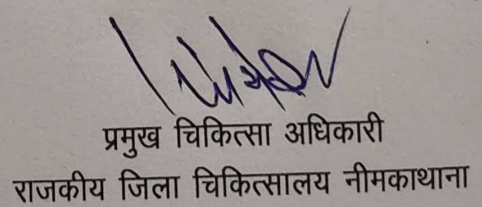 प्रमुख चिकित्सा अधिकारी
राजकीय जिला चिकित्सालय नीमकाथाना